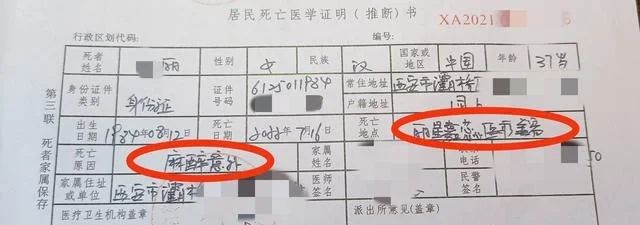 居民死亡医学证明(推断)书
XA2021
行政区划代码: 编号:
死者姓名 丽 性别 女 民族 汉 国家或地区 中国 年龄 37岁
身份证件类别 身份证 证件号码 常住地址 西安市灞桥
户籍地址 同上
出生日期 1984年08月12日 死亡日期 2022年7月16日 死亡地点
死亡原因 麻醉意外 家属姓名 联系电话 50
家属住址或单位 西安市灞桥 医师签名 民警签名
医疗卫生机构盖章 派出所意见(盖章)
第三联 死者家属保存